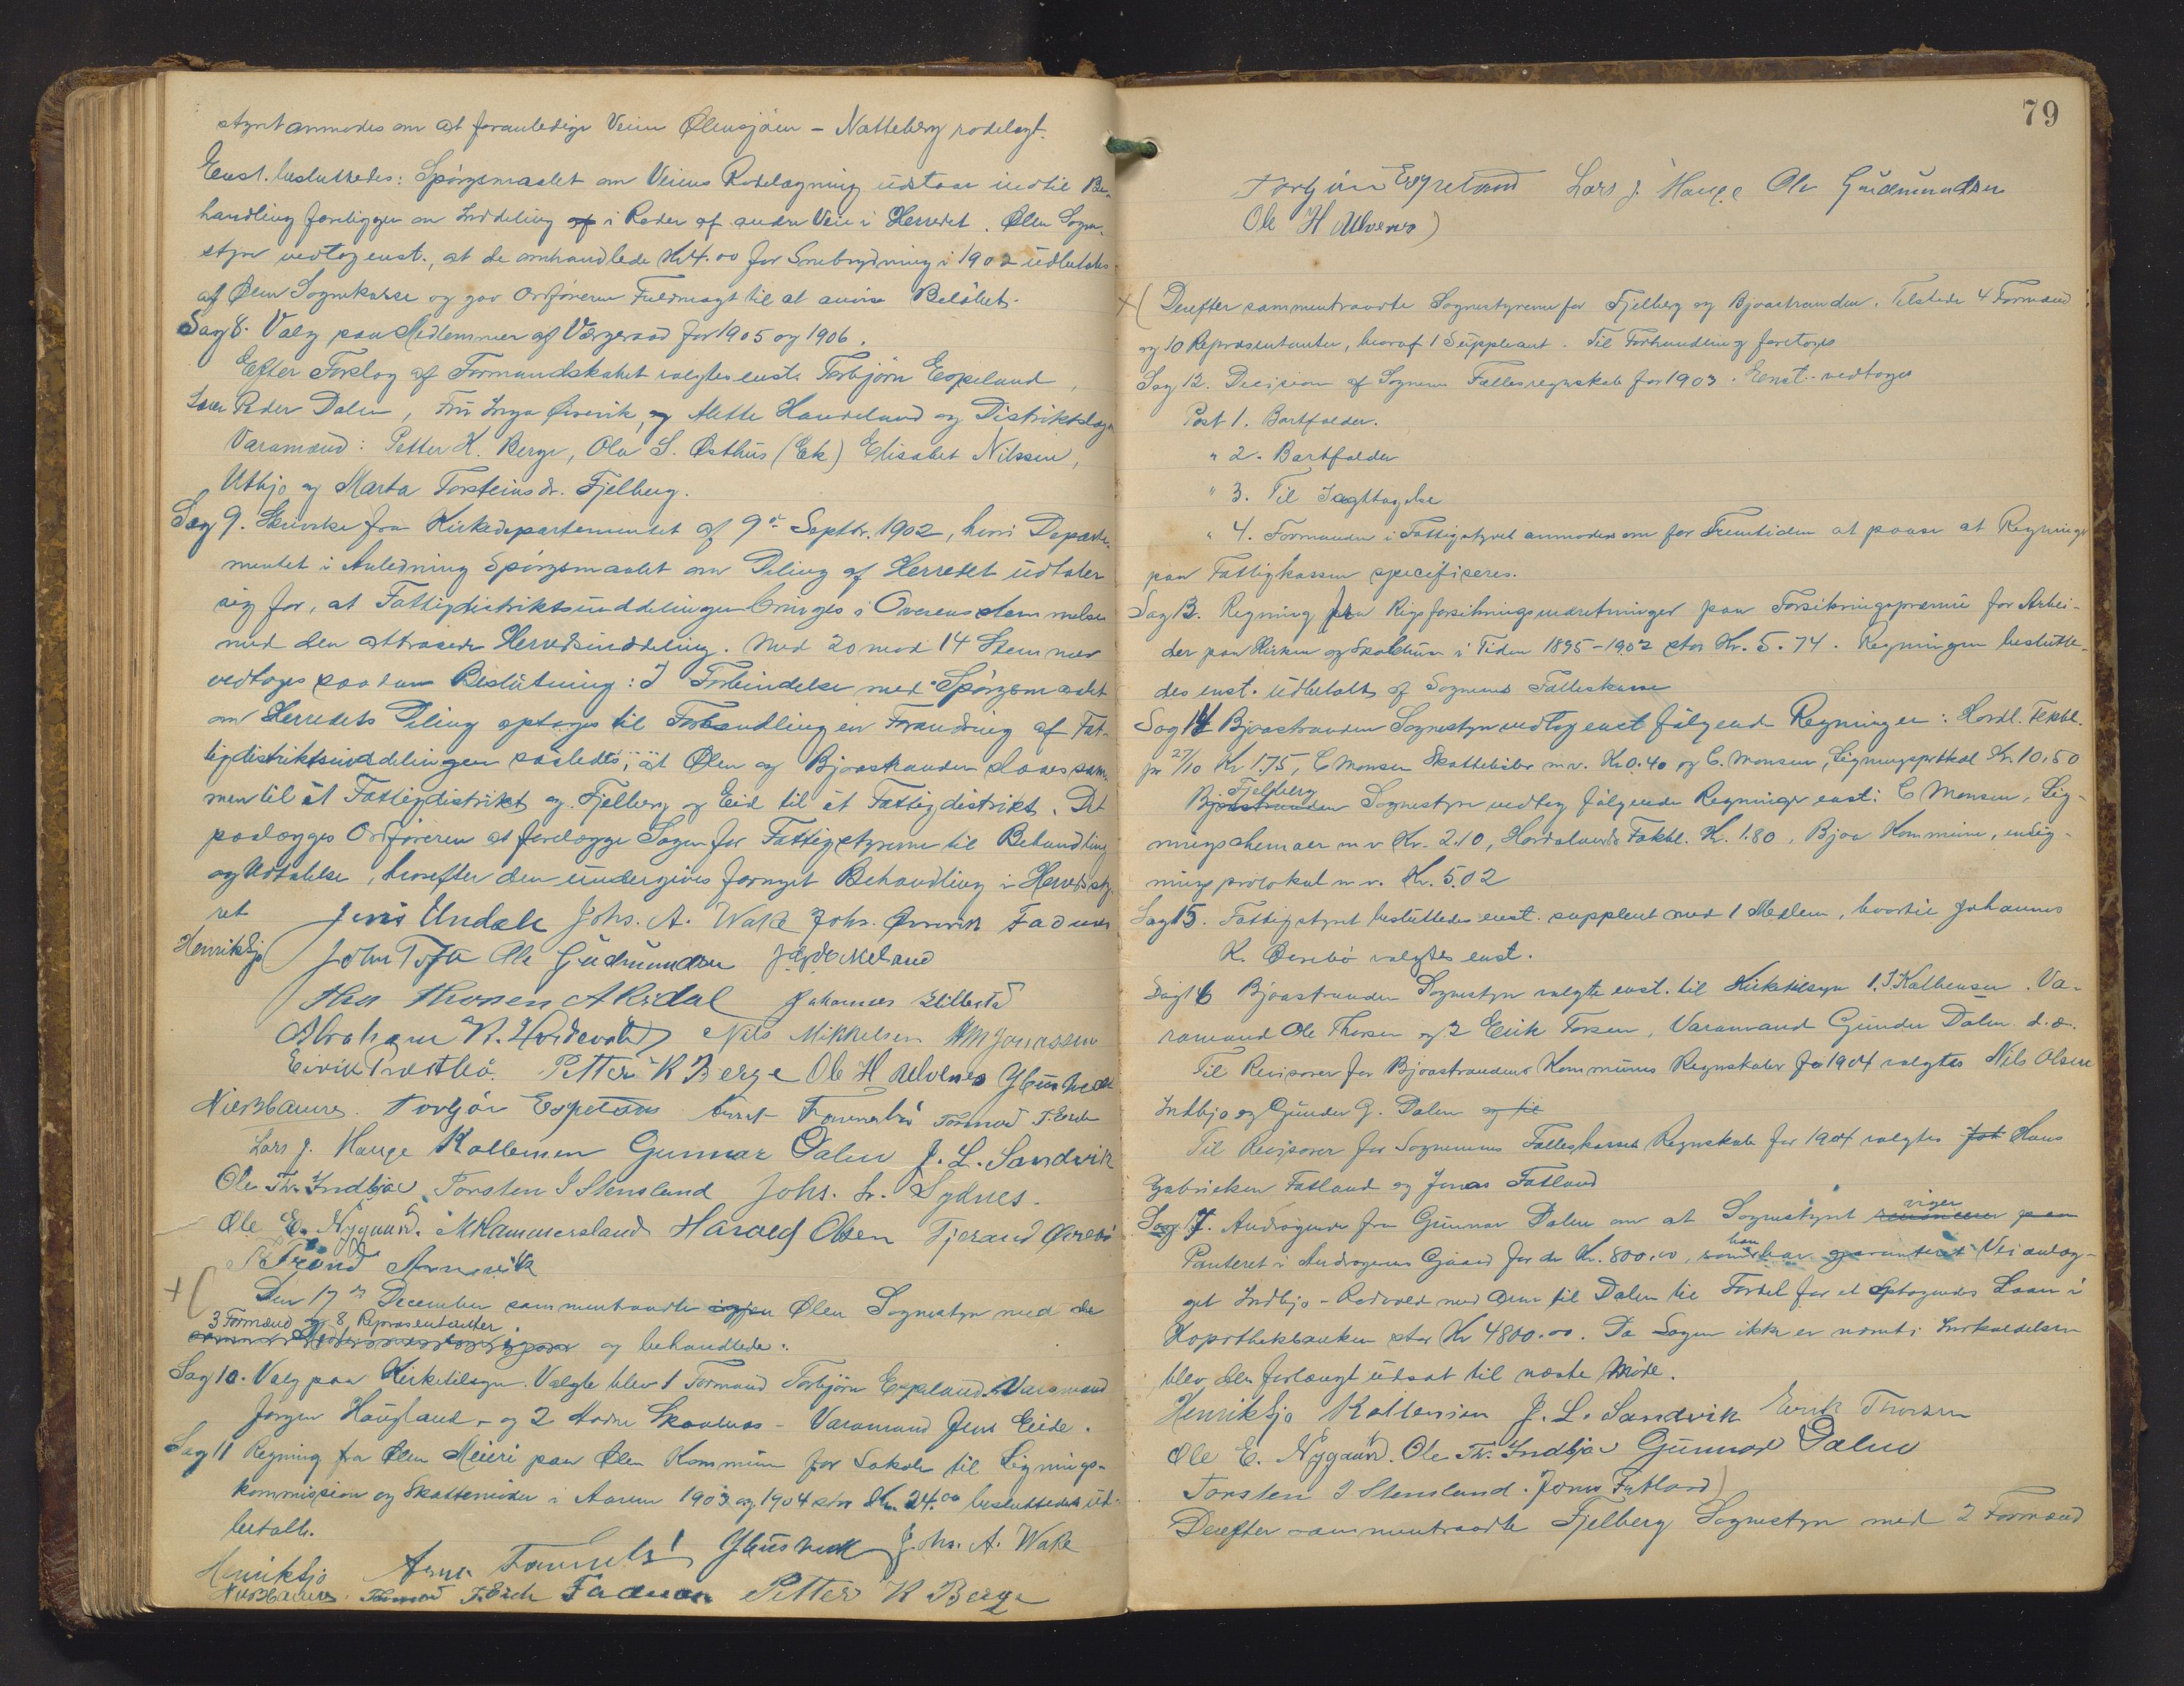 styret anmodes om at foranledige Veien Ølensjøen - Natteberg rodelagt.
Enst. besluttedes: Spörgsmaalet om Veiens Rodelægning udstaar indtil Be-
handling foreligger om Inddeling af i Roder af andre Veie i Herredet. Ølen Sogne-
styre vedtog enst., at de omhandlede Kr 4.00 for Snebrydning i 1902 udbetales
af Ølen Sognekasse og gav Ordföreren Fuldmagt til at anvise Belöbet.
Sag 8. Valg paa Medlemmer af Værgeraad for 1905 og 1906.
Efter Forslag af Formandskabet valgtes enst. Torbjörn Espeland,
Lærer Peder Dalen, Fru Inga Øvrevik, og Mette Handeland og Distriktslægen
Varamænd: Petter K. Berge, Ola S. Østhus (Ek) Elisabet Nilssen,
Utbjo og Marta Torsteinsdr. Fjelberg.
Sag 9. Skrivelse fra Kirkedepartementet af 9de Septbr. 1902, hvori Departe-
mentet i Anledning Spörgsmaalet om Deling af Herredet udtaler
sig for, at Fattigdistriktsinddelingen bringes i Overensstemmelse
med den attraaede Herredsinddeling. Med 20 mod 14 Stemmer
vedtoges saadan Beslutning: I Forbindelse med Spörgsmaalet
om Herredets Deling optages til Forhandling en Forandring af Fat-
tigdistriktsinddelingen saaledes, at Ølen og Bjoastranden slaaes sam-
men til ét Fattigdistrikt og Fjelberg og Eid til ét Fattigdistrikt. Det
paalægges Ordföreren at forelægge Sagen for Fattigstyrerne til Behandling
og Udtalelse, hvorefter den undergives fornyet Behandling i Herredssty-
ret Jens Undahl Johs. A. Wake Johs. Øvrevik Fadnes
Henrik Bjo John Tofte Ole Gudmundsen
Thor Thorsen A Rödal Johannes Lillestöl
Abraham N. Hordevold Nils Mikkelsen HM Jonassen
Eirik Præstbö. Petter K Berge Ole H Ulvenes
Torbjör Espeland Tormod T. Eide
Lars J. Hauge Kallemsen Gunnar Dalen J. L. Sandvik
Ole Th. Indbjo Torsten I Stensland Johs. L. Sydnes.
Ole E. Nygaard. M Kammersland Harald Olsen Tjerand Öireb
P. Trond Annevik
Den 17de December sammentraadte igjen Ølen Sognestyre med de
3 Formænd og 8 Repræsentanter
og behandlede:
Sag 10. Valg paa Kirketilsyn. Valgte blev 1 Formand Torbjörn Espeland. Varamand
Jörgen Haugland - og 2 Aadne Skaalnes - Varamand Jens Eide.
Sag 11 Regning fra Ølen Meieri paa Ølen Kommune for Lokale til Lignings-
kommission og Skattemöder i Aarene 1903 og 1904 stor Kr. 24.00 besluttedes ud-
betalt.
Henrik Bjo Johs. A. Wake
T. Eide Fadnes Petter K Berge
79
Torbjörn Espeland Lars J. Hauge Ole Gudmundsen
Ole H Ulvenes)
+( Derefter sammentraadte Sognestyrerne for Fjelberg og Bjoastranden. Tilstede 4 Formænd
og 10 Repræsentanter, hvoraf 1 Suppleant. Til Forhandling foretoges
Sag 12. Decision af Sognenes Fællesregnskab for 1903. Enst. vedtoges
Post 1. Bortfalder.
" 2. Bortfalder
" 3. Til Iagttagelse
" 4. Formanden i Fattigstyret anmodes om for Fremtiden at paase at Regninger
paa Fattigkassen specifiseres.
Sag 13. Regning fra Rigsforsikringsindretningen paa Forsikringspræmie for Arbei-
der paa Kirken og Skolehuse i Tiden 1895-1902 stor Kr. 5.74. Regningen beslutte-
des enst. udbetalt af Sognenes Fælleskasse
Sag 14 Bjoastranden Sognestyre vedtog enst fölgende Regninger: Hordl. Fektbl.
pr 27/10 Kr. 1.75, C Monsen Skattelister m.v. Kr. 0.40 og C. Monsen, Ligningsprotkol Kr. 10.50
Fjelberg
Bjoastranden Sognestyre vedtog fölgende Regninger enst: C Monsen, Lig-
ningschemaer m v Kr. 2.10, Hordalands Folkbl. Kr. 1.80, Bjoa Kommune,
ningsprotokol m v. Kr. 5.02
Sag 15. Fattigstyret besluttedes enst. suppleret med 1 Medlem, hvortil Johannes
K. valgtes enst.
Sag 16 Bjoastranden Sognestyre valgte enst. til Kirketilsyn 1. I. Kallemsen. Va-
ramand Ole Thorsen og 2 Eirik Torsen, Varamand Gunder Dalen d. æ.
Til Revisorer for Bjoastrandens Kommunes Regnskaber for 1904 valgtes Nils Olsen
Indbjo og Gunder G. Dalen og til
Til Revisorer for Sognenes Fælleskasses Regnskab for 1904 valgtes Joh Hans
Gabrielsen Fatland og Jonas Fatland
Sag 17. Andragende fra Gunnar Dalen om at Sognestyret
viger
Panteret i Andragerens Gaard for de Kr. 800.00, som han har garanteret Veianlæg-
get Indbjo - Rodvold med Arm til Dalen til Fordel for et optagendes Laan i
Hypothekbanken stor Kr 4800.00. Da Sagen ikke er nævnt i Indkaldelsen
blev den forlangt udsat til næste Möde.
Henrik Bjo Kallemsen J. L. Sandvik Eirik Thorsen
Ole E. Nygaard. Ole Th. Indbjo Gunnar Dalen
Torsten I Stensland. Jonas Fatland)
Derefter sammentraadte Fjelberg Sognestyre med 2 Formænd